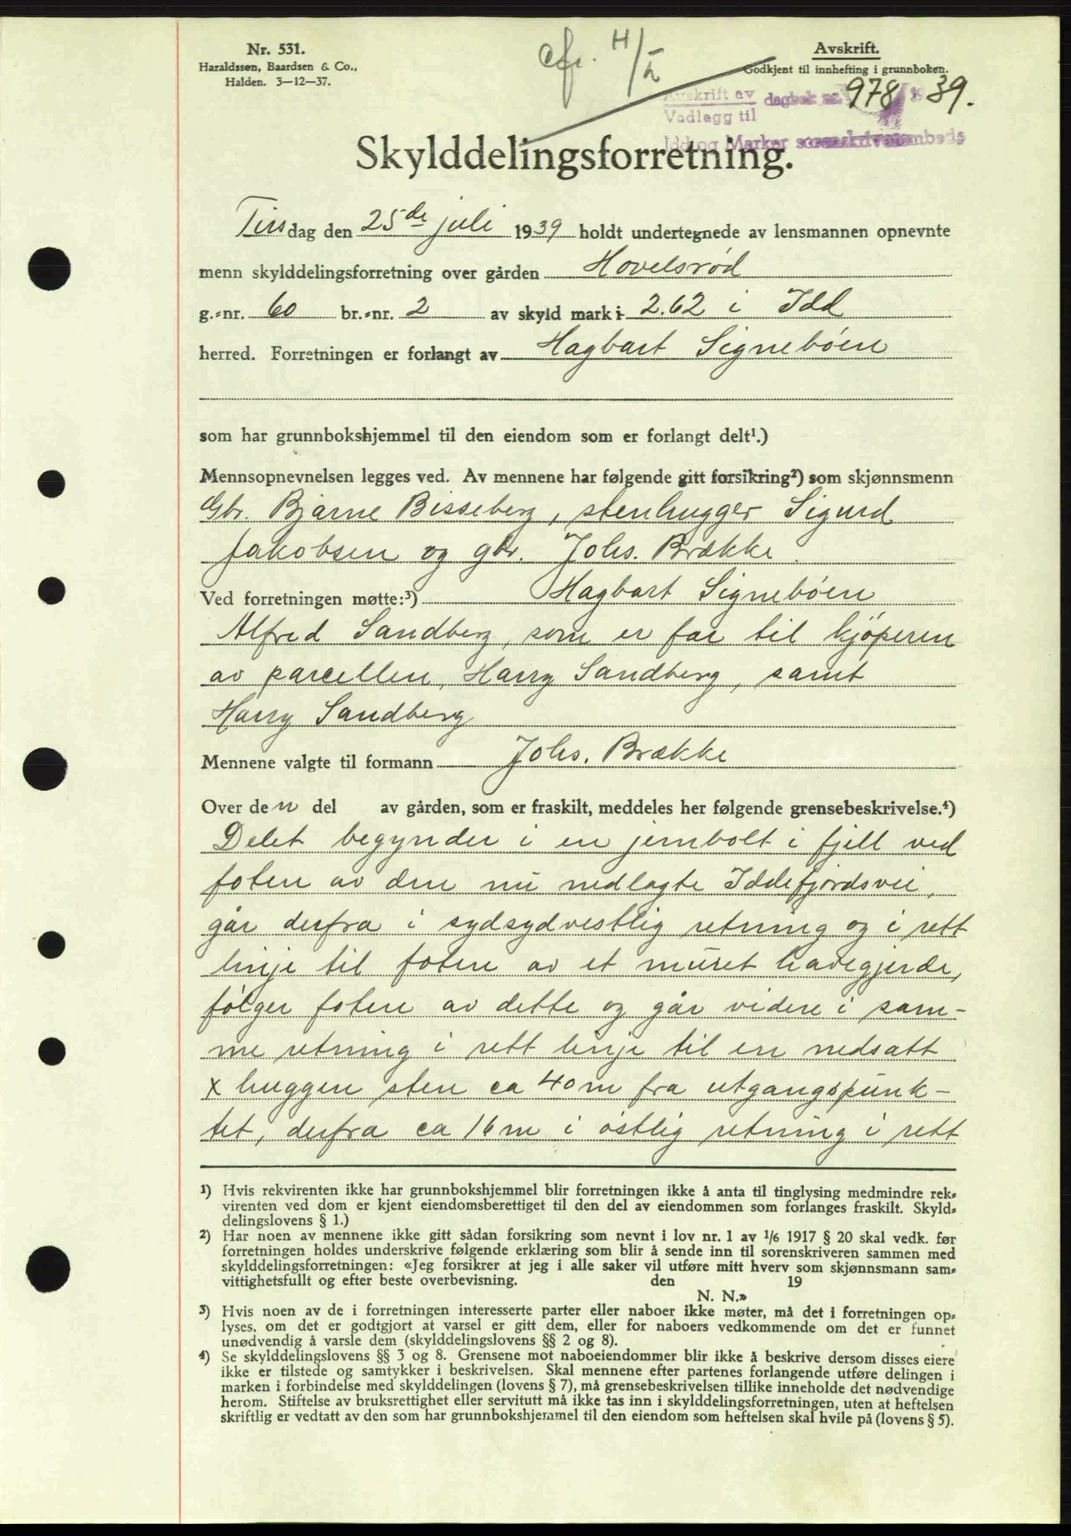 Nr. 531.
Haraldssen, Baardsen & Co.,
Halden. 3—12—37.
cfr. H/2
Avskrift.
Godkjent til innhefting i grunnboken.
Avskrift av
Vedlegg til
dagbok nr. 978 39.
Idd og Marker sorenskriverembede
Skylddelingsforretning.
Tirsdag den 25de juli 1939 holdt undertegnede av lensmannen opnevnte
menn skylddelingsforretning over gården Hovelsrød
g.-nr. 60 br.-nr. 2 av skyld mark 2.62 i Idd
herred. Forretningen er forlangt av Hagbart Signebøen
som har grunnbokshjemmel til den eiendom som er forlangt delt¹.)
Mennsopnevnelsen legges ved. Av mennene har følgende gitt forsikring²) som skjønnsmenn
Gbr. Bjarne Bisseberg, stenhugger Sigurd
Jakobsen og gbr. Johs. Brække.
Ved forretningen møtte:³) Hagbart Signebøen
Alfred Sandberg, som er far til kjøperen
av parcellen, Harry Sandberg, samt
Harry Sandberg
Mennene valgte til formann Johs. Brække
Over den del av gården, som er fraskilt, meddeles her følgende grensebeskrivelse.⁴)
Delet begynder i en jernbolt i fjell ved
foten av den nu nedlagte Iddefjordsvei,
går derfra i sydsydvestlig retning og i rett
linje til foten av et muret havegjerde,
følger foten av dette og går videre i sam-
me retning i rett linje til en nedsatt
x huggen sten ca 40 m fra utgangspunk-
tet, derfra ca 16 m i østlig retning i rett
¹) Hvis rekvirenten ikke har grunnbokshjemmel blir forretningen ikke å anta til tinglysing medmindre rek-
virenten ved dom er kjent eiendomsberettiget til den del av eiendommen som forlanges fraskilt. Skyld-
delingslovens § 1.)
²) Har noen av mennene ikke gitt sådan forsikring som nevnt i lov nr. 1 av 1/6 1917 § 20 skal vedk. før
forretningen holdes underskrive følgende erklæring som blir å sende inn til sorenskriveren sammen med
skylddelingsforretningen: «Jeg forsikrer at jeg i alle saker vil utføre mitt hverv som skjønnsmann sam-
vittighetsfullt og efter beste overbevisning. den 19
N. N.»
³) Hvis noen av de i forretningen interesserte parter eller naboer ikke møter, må det i forretningen op-
lyses, om det er godtgjort at varsel er gitt dem, eller for naboers vedkommende om det er funnet
unødvendig å varsle dem (skylddelingslovens §§ 2 og 8).
⁴) Se skylddelingslovens §§ 3 og 8. Grensene mot naboeiendommer blir ikke å beskrive dersom disses eiere
ikke er tilstede og samtykker i beskrivelsen. Skal mennene efter partenes forlangende utføre delingen i
marken i forbindelse med skylddelingen (lovens § 7), må grensebeskrivelsen tillike inneholde det nødvendige
herom. Stiftelse av bruksrettighet eller servitutt må ikke tas inn i skylddelingsforretningen, uten at heftelsen
skriftlig er vedtatt av den som har grunnbokshjemmel til den eiendom som heftelsen skal hvile på (lovens § 5).